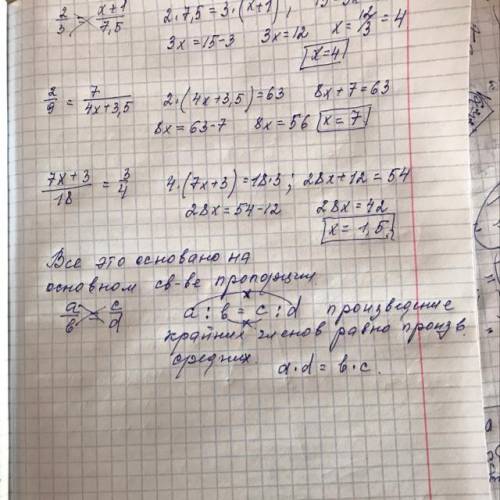 2/3 = x+1/7,5   2·7,5=3·(x+1);
3x=15-3   3x=12   x=12/3=4
x=4
2/9 = 7/4x+3,5   2·(4x+3,5)=63   8x+7=63
8x=63-7   8x=56   x=7
7x+3/18 = 3/4   4·(7x+3)=18·3; 28x+12=54
28x=54-12   28x=42
x=1,5
Все это основано на
основном св-ве пропорции
a/b = c/d   a:b=c:d произведение
крайних членов равно произв.
средних.   a·d=b·c.